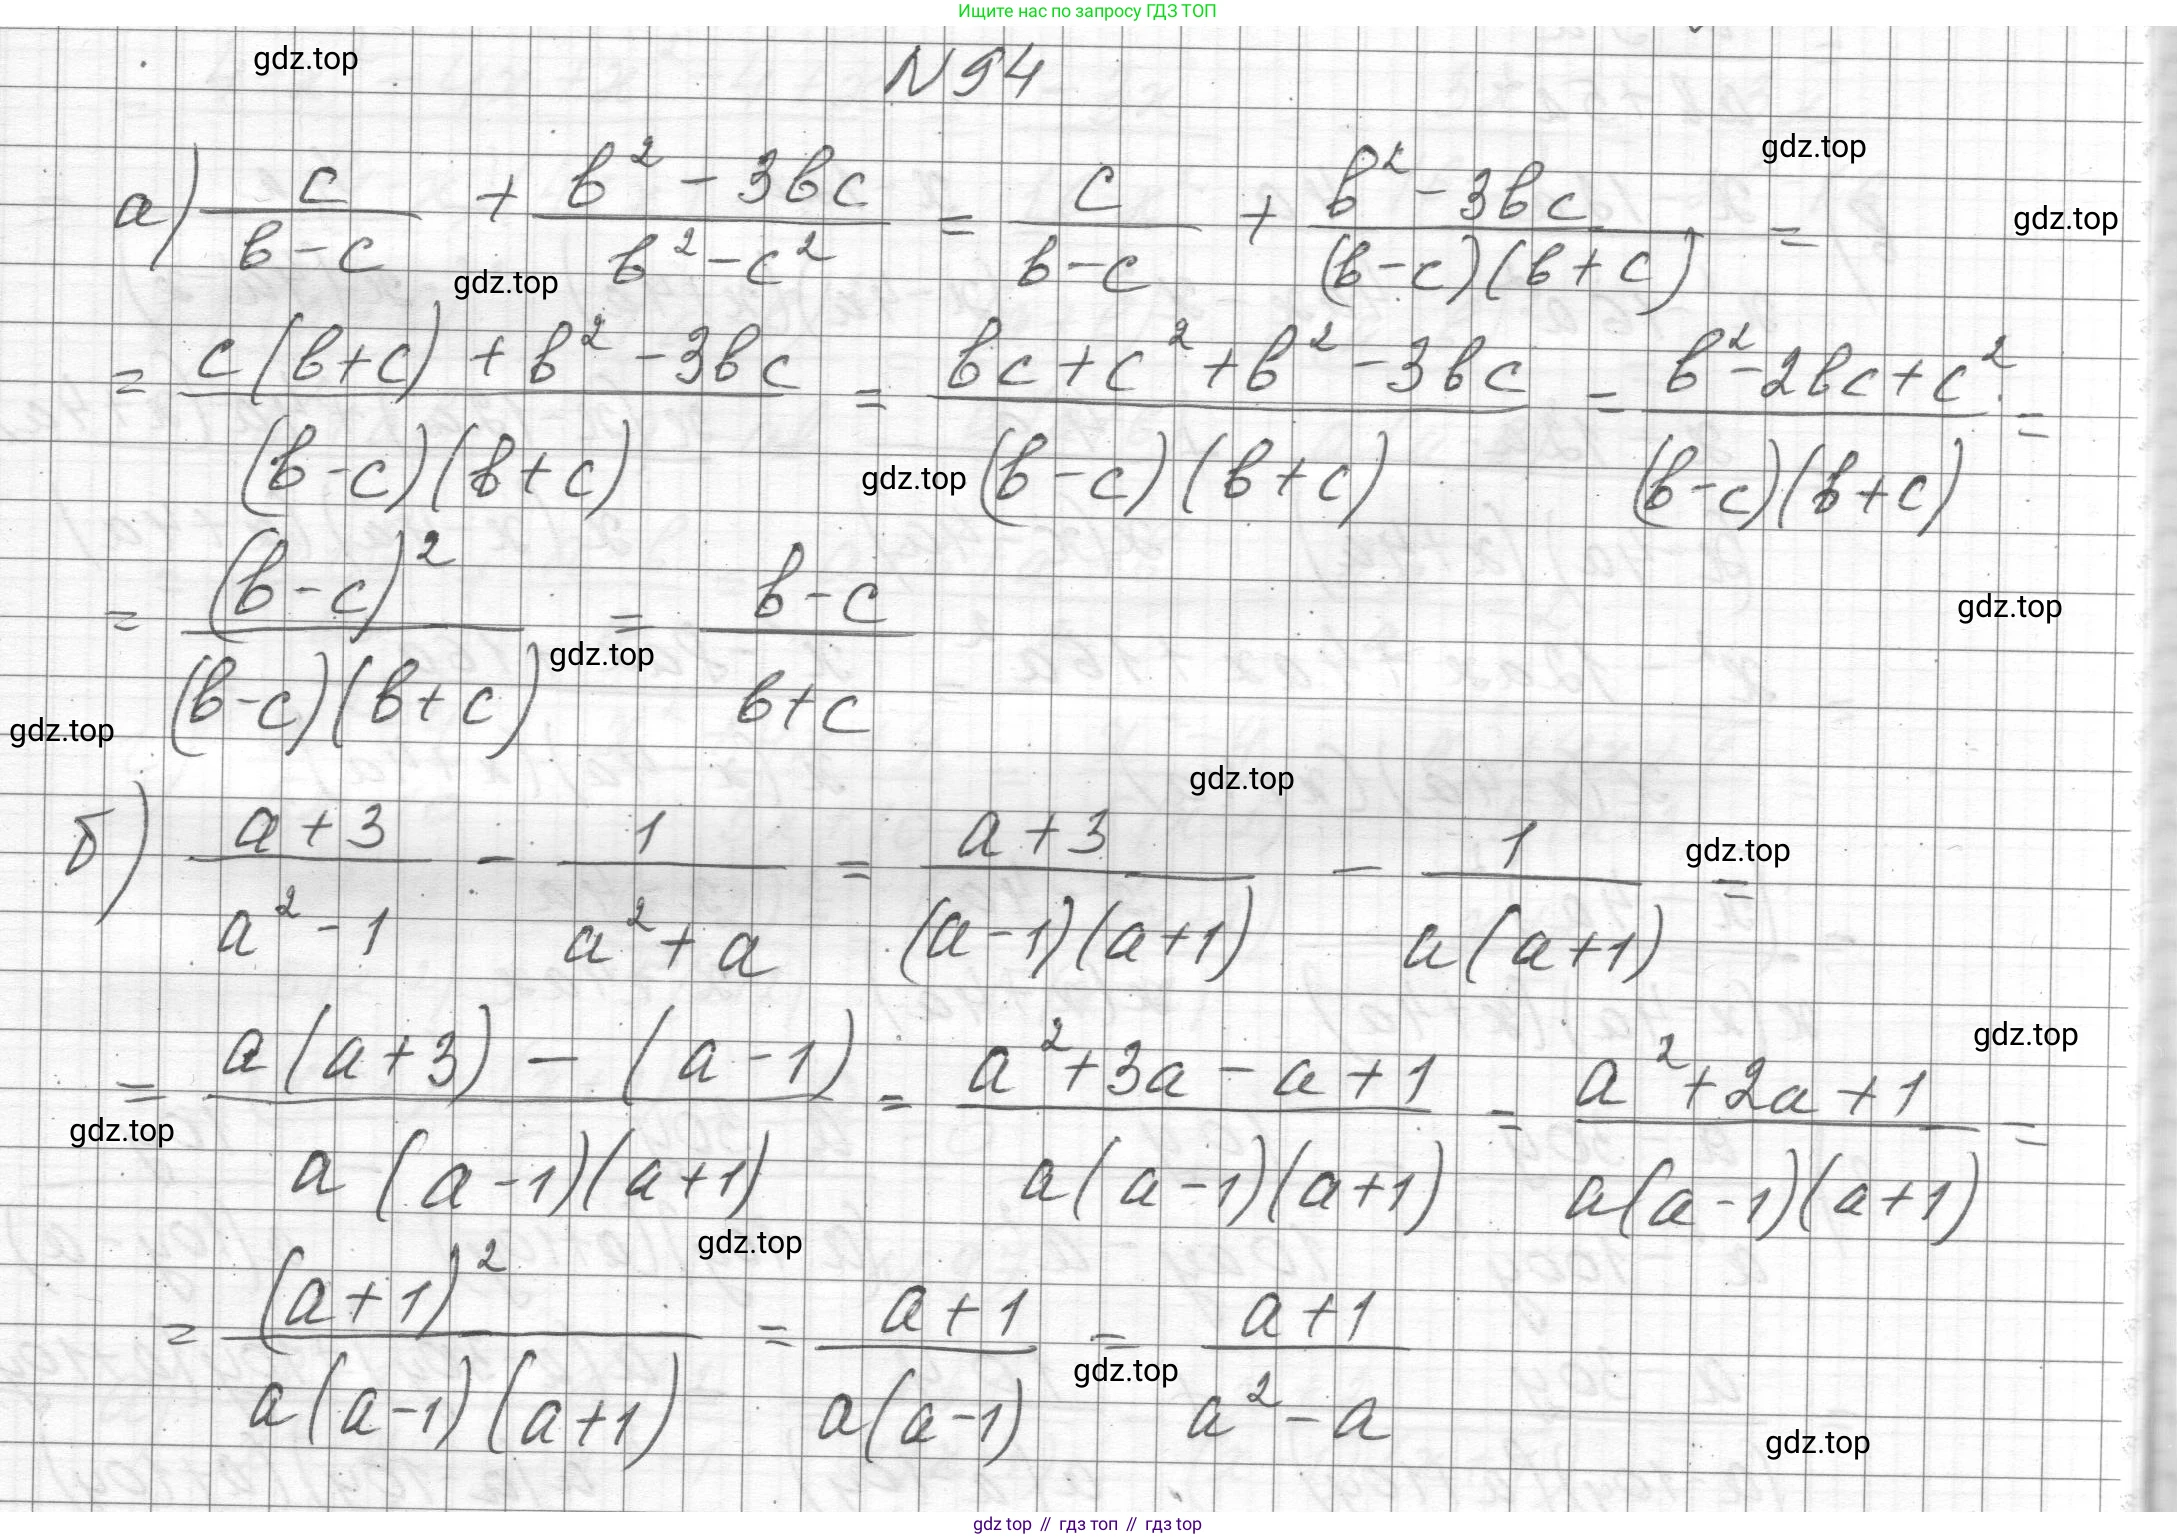 Ищите нас по запросу ГДЗ ТОП
gdz.top
N 94
gdz.top
а) c/(b-c) + (b²-3bc)/(b²-c²) = c/(b-c) + (b²-3bc)/((b-c)(b+c)) =
gdz.top
gdz.top
= (c(b+c)+b²-3bc)/((b-c)(b+c)) = (bc+c²+b²-3bc)/((b-c)(b+c)) = (b²-2bc+c²)/((b-c)(b+c)) =
gdz.top
= (b-c)²/((b-c)(b+c)) = (b-c)/(b+c)
gdz.top
gdz.top
gdz.top
gdz.top
б) (a+3)/(a²-1) - 1/(a²+a) = (a+3)/((a-1)(a+1)) - 1/(a(a+1)) =
gdz.top
gdz.top
= (a(a+3)-(a-1))/(a(a-1)(a+1)) = (a²+3a-a+1)/(a(a-1)(a+1)) = (a²+2a+1)/(a(a-1)(a+1)) =
gdz.top
gdz.top
= (a+1)²/(a(a-1)(a+1)) = (a+1)/(a(a-1)) = (a+1)/(a²-a)
gdz.top
gdz.top
gdz top // гдз топ // гдз top